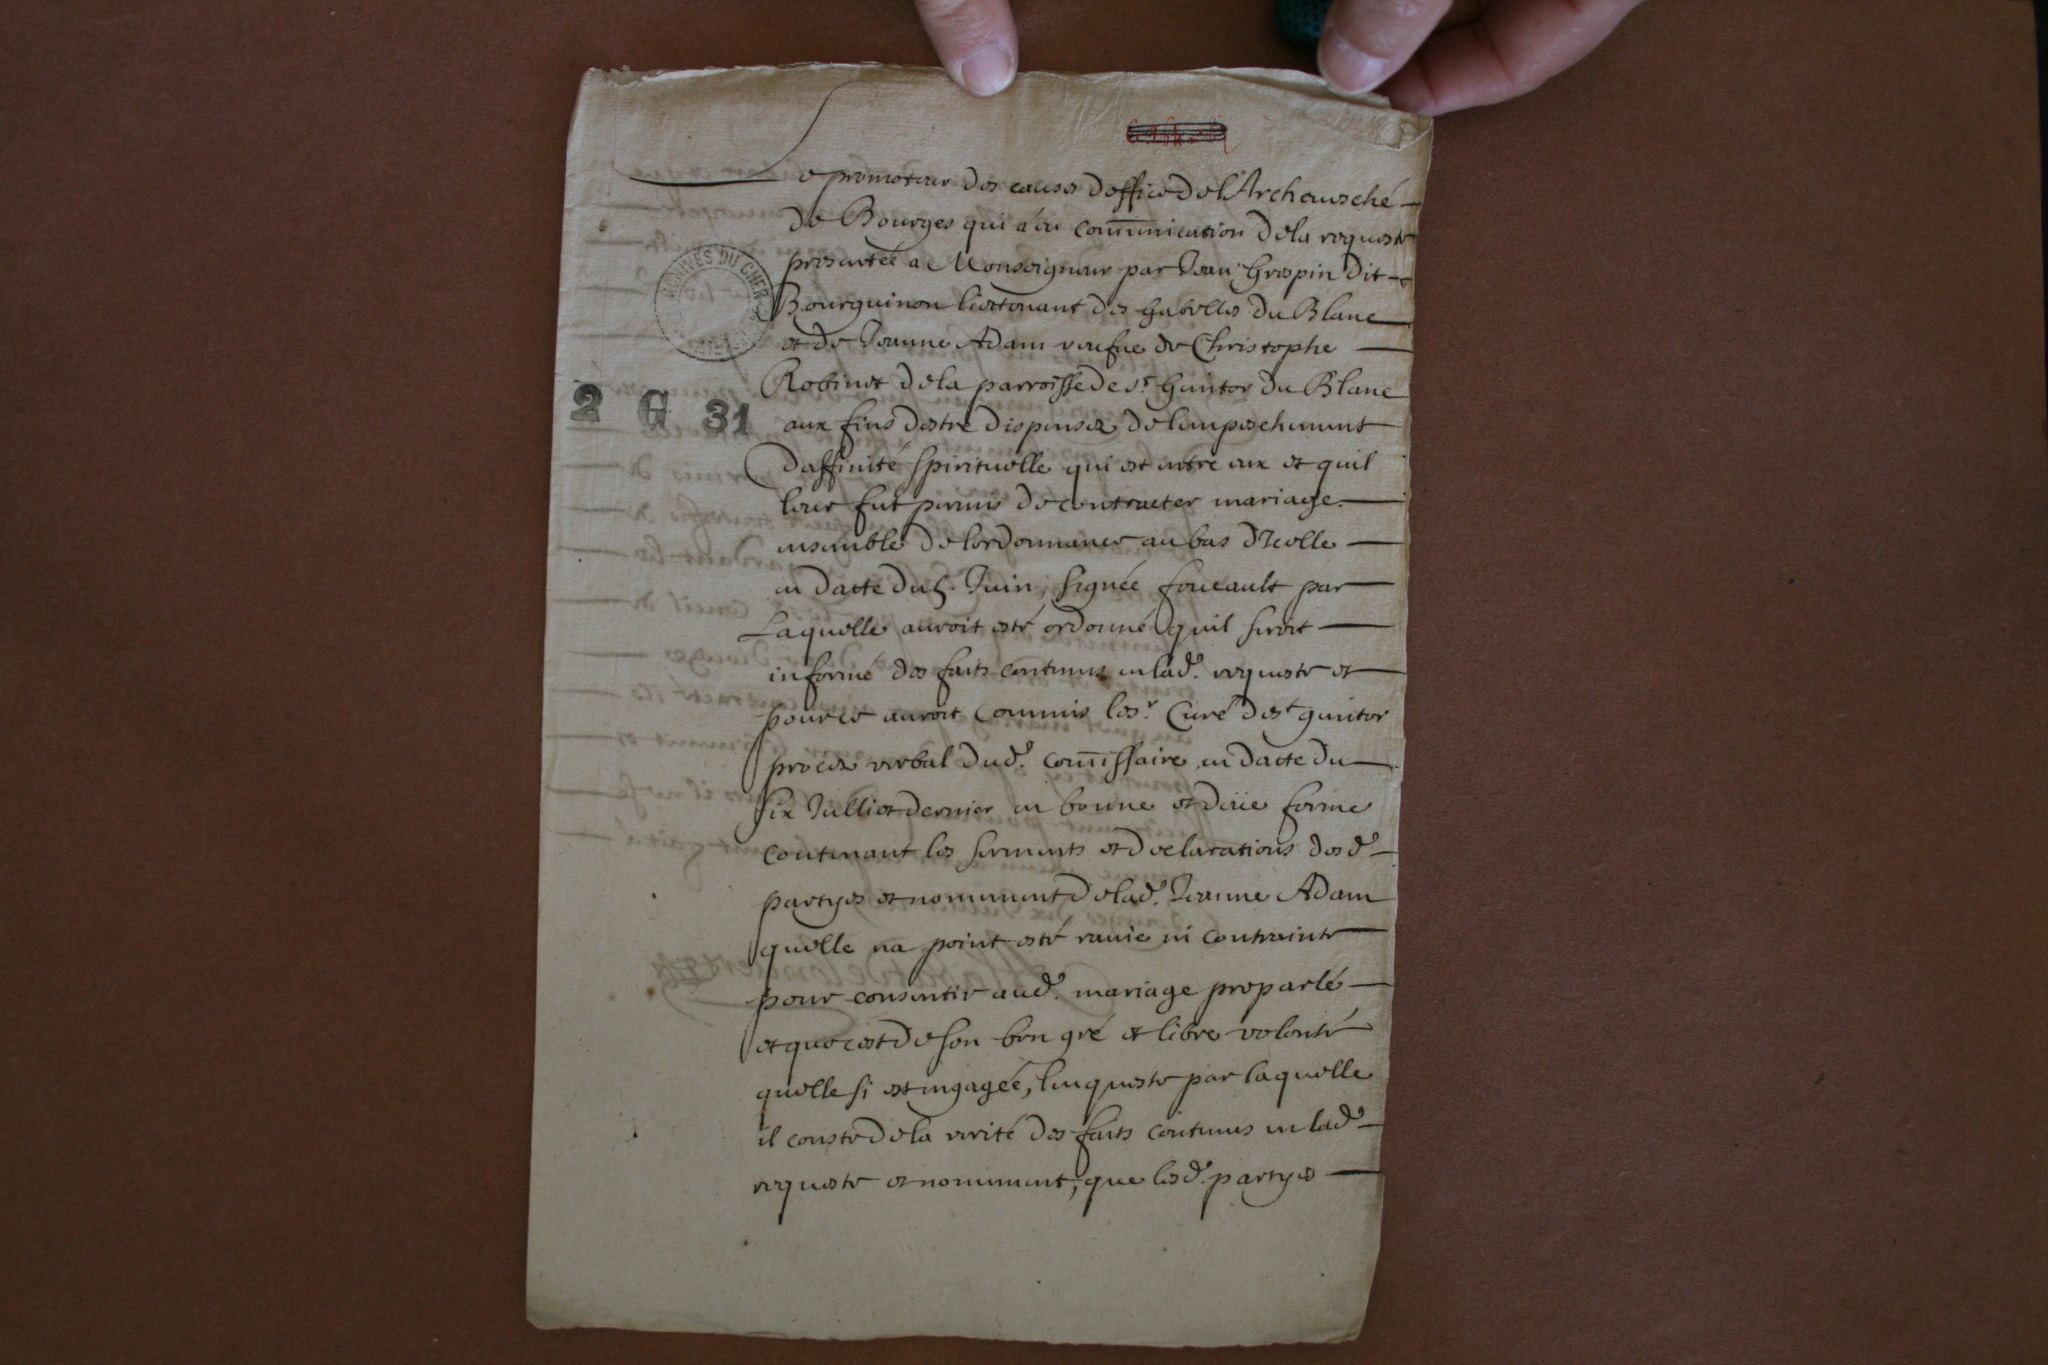 Le promoteur des causes doffice de l'Archeuesché
de Bourges qui a eu com̄unication de la requeste
presentée a Monseigneur par Jean Grospin dit
Bourguinon lieutenant des Gabelles du Blanc
et de Jeanne Adam veufue de Christophe
Robinet de la parroisse de st. Genitor du Blanc
aux fins destre dispensez de lempeschement
daffinité spirituelle qui est entre eux et quil
leur fut permis de contracter mariage.
ensemble de lordonnance au bas d'Icelle
en datte du 5. Juin, signée foucault par
Laquelle auroit esté ordonné quil seroit
informé des faits contenus en lad. requeste et
pour ce auroit commis le sr. Curé de st genitor
procez verbal dud. com̄issaire en datte du
six Julliet dernier en bonne et deüe forme
contenant les serments et declarations desd.
partyes et nommement de lad. Jeanne Adam
quelle na point esté ravie ni contrainte
pour consentir aud. mariage proparlé
et que cest de son bon gré et libre volonté
quelle si est engagée, lenqueste par laquelle
il conste de la verité des faits contenus en lad.
requeste et nommement, que lesd. partyes
2 G 31
DU CHER